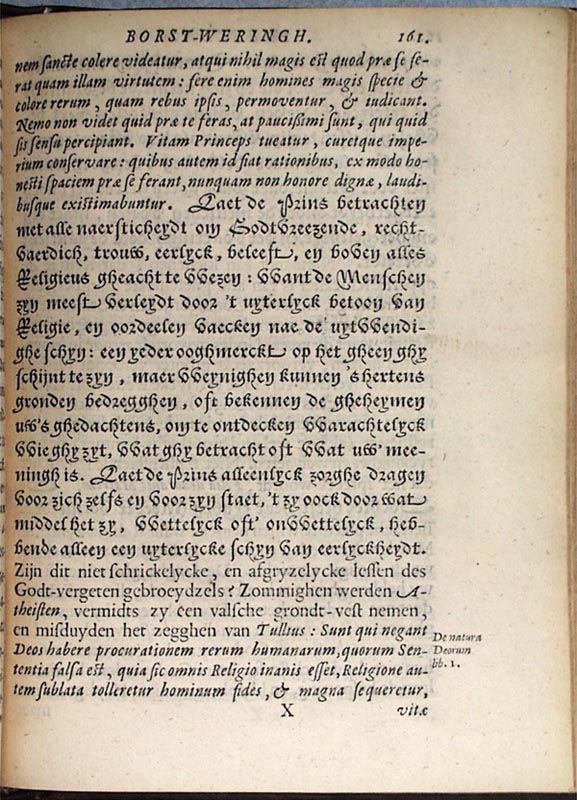 BORST-WERINGH. 161.
nem sancte colere videatur, atqui nihil magis est quod præ se fe-
rat quam illam virtutem: fere enim homines magis specie &
colore rerum, quam rebus ipsis, permoventur, & iudicant.
Nemo non videt quid præ te feras, at paucißimi sunt, qui quid
sis sensu percipiant. Vitam Princeps tueatur, curetque impe-
rium conservare: quibus autem id fiat rationibus, ex modo ho-
nesti spaciem præ se ferant, nunquam non honore dignæ, laudi-
busque existimabuntur. Laet de Prins betrachten
met alle naersticheydt om Godtvreezende, recht-
vaerdich, trouw, eerlyck, beleeft, en boven alles
Religieus gheacht te wezen: Want de Menschen
zyn meest verleydt door 't uyterlyck betoon van
Religie, en oordeelen vaecken nae de uytwendi-
ghe schyn: een yeder ooghmerckt op het gheen ghy
schijnt te zyn, maer weynighen kunnen 's hertens
gronden bedregghen, oft bekennen de gheheymen
uw's ghedachtens, om te ontdecken warachtelyck
wie ghy zyt, wat ghy betracht oft wat uw' mee-
ningh is. Laet de Prins alleenlyck zorghe dragen
voor zich zelfs en voor zyn staet, 't zy oock door wat
middel het zy, wettelyck oft' onwettelyck, heb-
bende alleen een uyterlycke schyn van eerlyckheydt.
Zijn dit niet schrickelycke, en afgryzelycke lessen des
Godt-vergeten gebroeydzels? Zommighen werden A-
theisten, vermidts zy een valsche grondt-vest nemen,
en misduyden het zegghen van Tullius: Sunt qui negant
Deos habere procurationem rerum humanarum, quorum Sen-
tentia falsa est, quia sic omnis Religio inanis esset, Religione au-
tem sublata tolleretur hominum fides, & magna sequeretur,
De natura
Deorum
lib. 1.
X vitæ